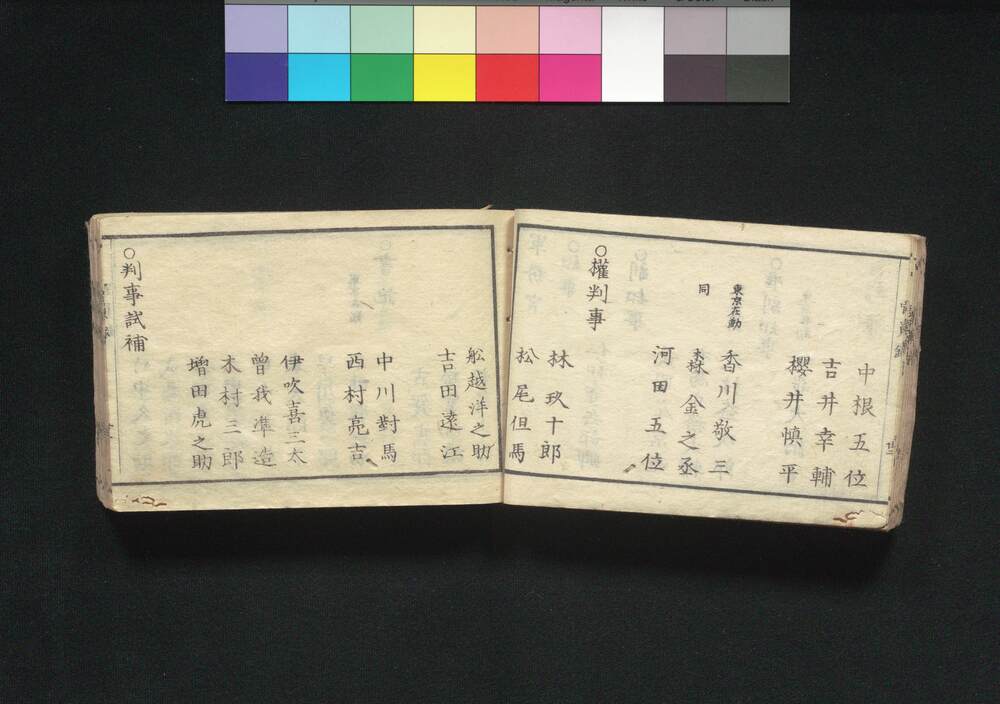 中根五位
吉井幸輔
櫻井慎平
東京在勤 香川敬三
同 森金之丞
河田五位
○權判事
林玖十郎
松尾但馬
舩越洋之助
吉田遠江
中川對馬
西村亮吉
伊吹喜三太
曽我準造
木村三郎
増田虎之助
○判事試補